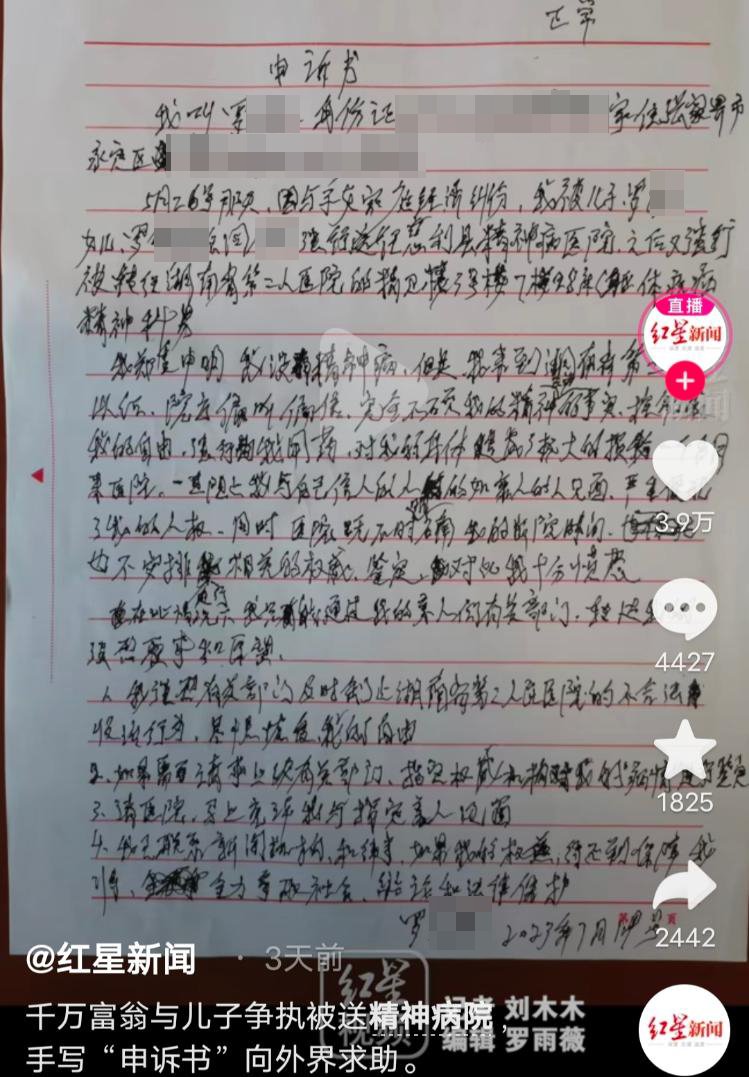 正常
申诉书
我叫罗 身份证 家住张家界市
永定区
5月26号那天，因与子女家庭经济纠纷，我被儿子罗
女儿罗 强行送往慈利县精神病医院，之后又强行
被转往湖南省第二人民医院的
精神科
我郑重申明 我没精神病，但是，我来到湖南省第
以后，院方偏听偏信，完全不不顾我的精神的事实，控制
我的自由，强行我用药，对我的身体造成了极大的损
来医院，一直阻止我与自己信人的人的如亲人的人见面，严重
了我的人权、同时医院既不 我的出院时间，
也不安排相关的权威，鉴定，对此我十分愤慨
在此情况下我只能通过我的亲人向有关部门，
强烈要求和
1、我强烈有关部门及时制止湖南省第二人民医院的不合法
收治行为，尽快恢复我的自由
2、如果需要请求上级有关部门，指定权威机构对我的病情进行鉴定
3、请医院，马上允许我与指定亲人见面
4、我已联系新闻机构，和律师，如果我的权益，得不到保障 我
将，全力争取社会，舆论和法律保护
罗 2023年7月
第 页
直播
红星新闻
3.9万
4427
1825
2442
@红星新闻 · 3天前
红星视频
记者 刘木木
编辑 罗雨薇
千万富翁与儿子争执被送精神病院，
手写“申诉书”向外界求助。
红星新闻